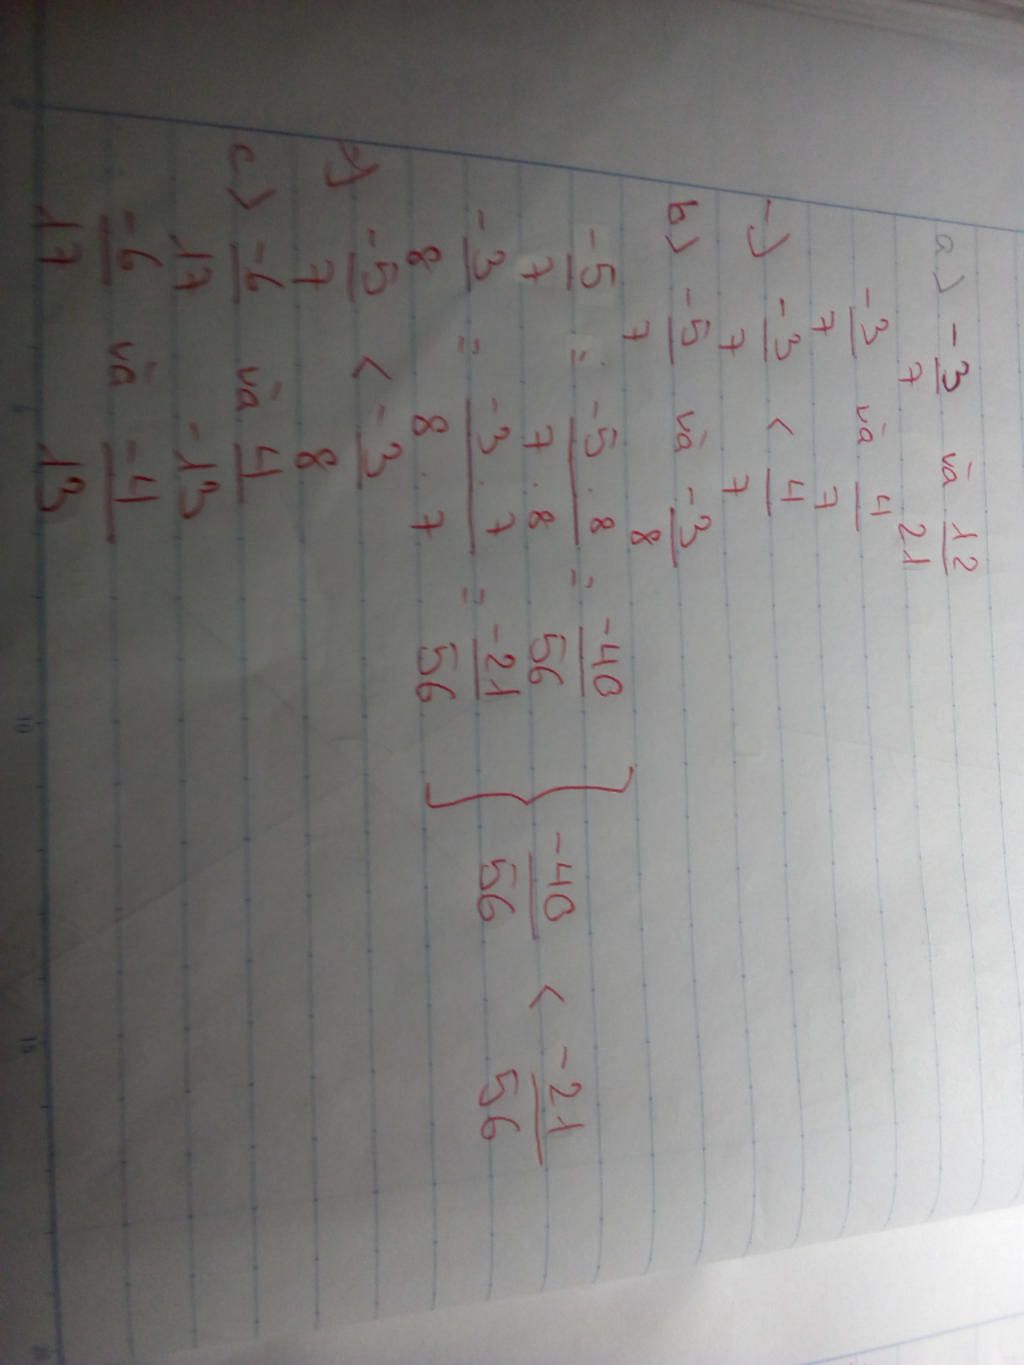 a) -3/7 và 12/21
-3/7 và 4/7
-) -3/7 < 4/7
b) -5/7 và -3/8
-5/7 = -5.8/7.8 = -40/56
-3/8 = -3.7/8.7 = -21/56
} -40/56 < -21/56
-5/7 < -3/8
c) -6/17 và 4/-13
-6/17 và -4/13